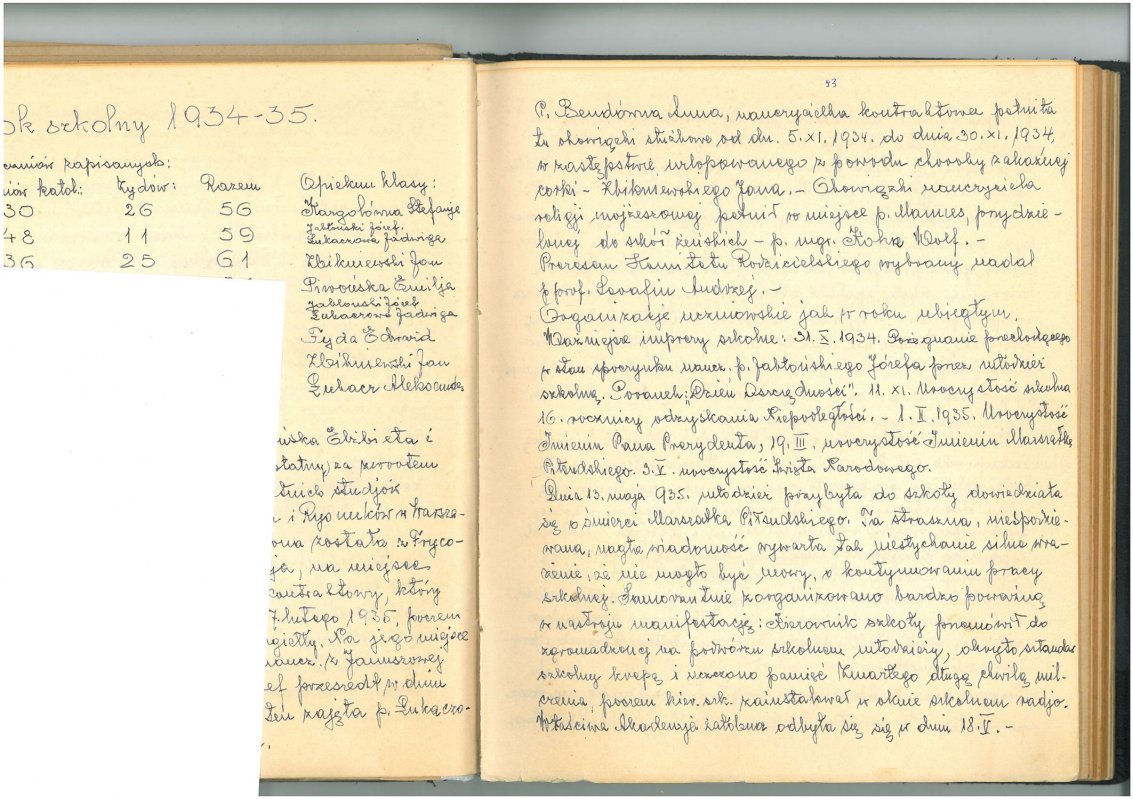 ok szkolny 1934-35.
uczniów zapisanych:
niów katol.: Żydów: Razem Opiekun klasy:
30 26 56 Kargolówna Stefanja
Jabłoński Józef.
48 11 59 Łukaczowa Jadwiga
36 25 61 Zbikniewski Jan
Piwońska Emilja
Jabłoński Józef
Łukaczowa Jadwiga
Fyda Edward
Zbikniewski Jan
Łukacz Aleksander
ńska Elżbieta i
statny) za zwrotem
tnich studjów
i Rysunków w Warsza-
ona została z Fryco-
ja, na miejsce
kontraktowy, który
7 lutego 1935, poczem
giełły. Na jego miejsce
naucz. z Januszowej
ef przeszedł w dniu
ten zajęła p. Łukaczo-
83
P. Bendówna Anna, nauczycielka kontraktowa pełniła
tu obowiązki służbowe od dn. 5.XI.1934. do dnia 30.XI.1934,
w zastępstwie urlopowanego z powodu choroby zakaźnej
córki - Zbikniewskiego Jana. - Obowiązki nauczyciela
religji mojżeszowej pełnił w miejsce p. Mannes, przydzie-
lonej do szkół żeńskich - p. mgr. Wolf. -
Prezesem Komitetu Rodzicielskiego wybrany nadal
p. prof. Serafin Andrzej. -
Organizacje uczniowskie jak w roku ubiegłym.
Ważniejsze imprezy szkolne: 31.X.1934. Pożegnanie przechodzącego
w stan spoczynku naucz. p. Jabłońskiego Józefa przez młodzież
szkolną. Poranek: "Dzień Oszczędności". 11.XI. Uroczystość szkolna
16. rocznicy odzyskania Niepodległości. - 1.II.1935. Uroczystość
Imienin Pana Prezydenta, 19.III. uroczystość Imienin Marszałka
Piłsudskiego. 3.V. uroczystość Święta Narodowego.
Dnia 13. maja 935. młodzież przybyła do szkoły dowiedziała
się o śmierci Marszałka Piłsudskiego. Ta straszna, niespodzie-
wana, nagła wiadomość wywarła tak niesłychanie silne wra-
żenie, że nie mogło być mowy, o kontynuowaniu pracy
szkolnej. Samorzutnie zorganizowano bardzo poważną
w nastroju manifestację: Kierownik szkoły przemówił do
zgromadzonej na podwórzu szkolnem młodzieży, okryto sztandar
szkolny krepą i uczczono pamięć Zmarłego długą chwilą mil-
czenia, poczem kier. szk. zainstalował w oknie szkolnem radjo.
Właściwa Akademja żałobna odbyła się się w dniu 18.V. -